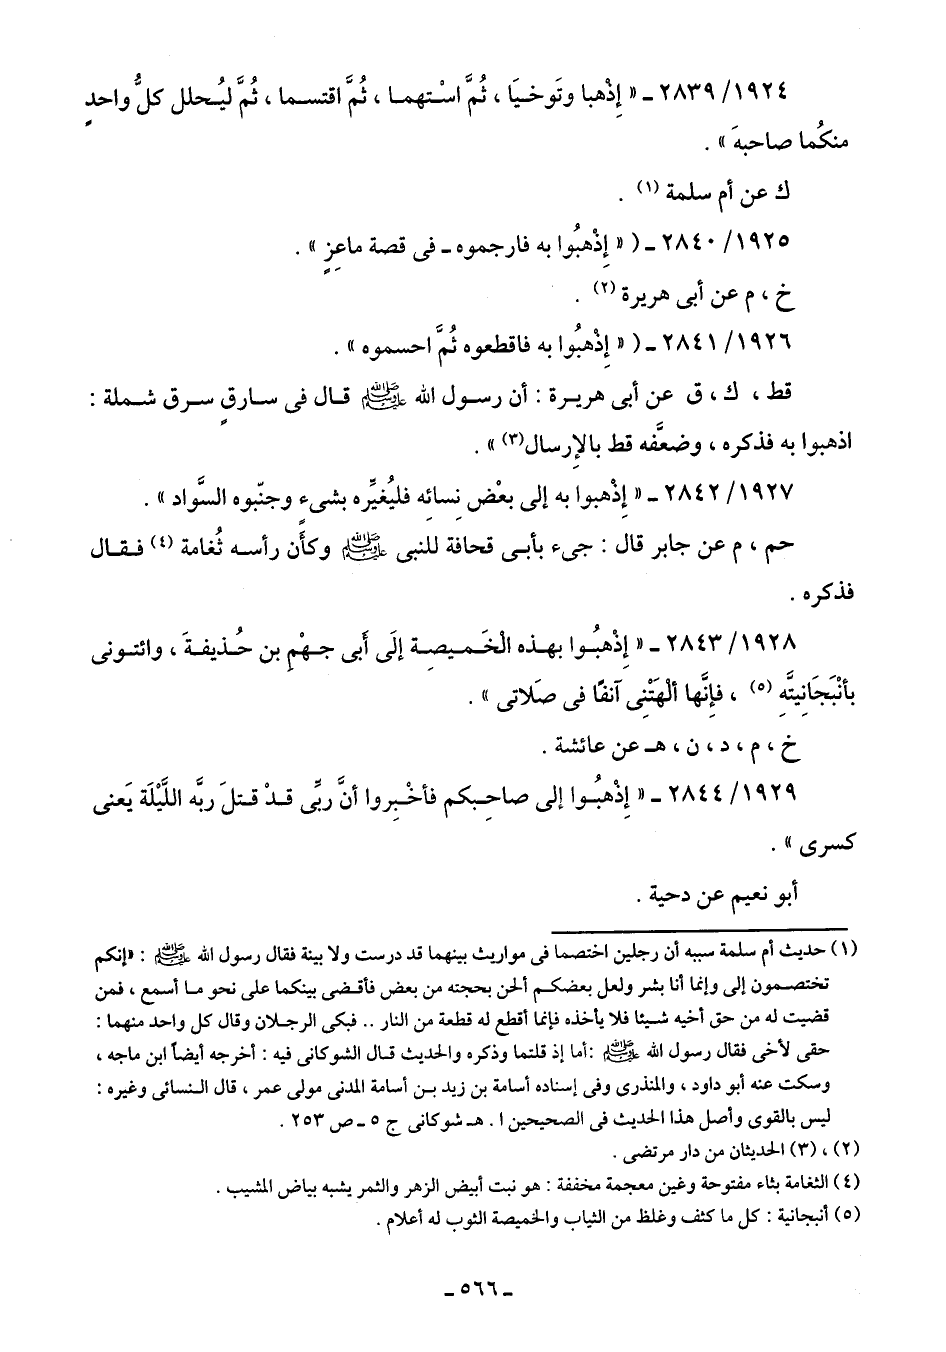 ٢٨٣٩/١٩٢٤ ـ « إِذْهبا وتَوخيَا ، ثُمَّ اسْتهما ، ثُمَّ اقتسما ، ثُمَّ ليُحلل كلُّ واحدٍ
منكُما صاحبهَ » .
ك عن أم سلمة (١) .
٢٨٤٠/١٩٢٥ ـ ( « إِذْهبُوا به فارجموه ـ فى قصة ماعِزٍ » .
خ ، م عن أبى هريرة (٢) .
٢٨٤١/١٩٢٦ ـ ( « إِذْهبُوا به فاقطعوه ثُمَّ احسموه » .
قط ، ك ، ق عن أبى هريرة : أن رسول الله ﷺ قال فى سارقٍ سرق شملة :
اذهبوا به فذكره ، وضعَّفه قط بالإِرسال(٣) » .
٢٨٤٢/١٩٢٧ ـ « إِذْهبوا به إلى بعْض نِسائه فليُغيِّره بشىءٍ وجنّبوه السَّواد » .
حم ، م عن جابر قال : جىء بأبى قحافة للنبى ﷺ وكأَن رأسه ثُغامة (٤) فقال
فذكره .
٢٨٤٣/١٩٢٨ ـ « إِذْهبُوا بهذه الْخَميصة إلَى أَبى جهْمِ بن حُذيفةَ ، وائتونى
بأنْبَجَانِيتَّهِ (٥) ، فإنَّها ألْهَتْنِى آنفًا فى صَلَاتى » .
خ ، م ، د ، ن ، هـ عن عائشة .
٢٨٤٤/١٩٢٩ ـ « إِذْهبُوا إلى صاحِبكم فأخْبِروا أنَّ ربِّى قدْ قتلَ ربَّه اللَّيْلَة يَعنى
كسرى » .
أبو نعيم عن دحية .
(١) حديث أم سلمة سببه أن رجلين اختصما فى مواريث بينهما قد درست ولا بينة فقال رسول الله ﷺ : «إنكم
تختصمون إلى وإنما أنا بشر ولعل بعضكم ألحن بحجته من بعض فأقضى بينكما على نحو ما أسمع ، فمن
قضيت له من حق أخيه شيئا فلا يأخذه فإنما أقطع له قطعة من النار .. فبكى الرجلان وقال كل واحد منهما :
حقى لأخى فقال رسول الله ﷺ :أما إذ قلتما وذكره والحديث قال الشوكانى فيه : أخرجه أيضاً ابن ماجه ،
وسكت عنه أبو داود ، والمنذرى وفى إسناده أسامة بن زيد بن أسامة المدنى مولى عمر ، قال النسائى وغيره :
ليس بالقوى وأصل هذا الحديث فى الصحيحين ا . هـ شوكانى ج ٥ ـ ص ٢٥٣ .
(٢) ، (٣) الحديثان من دار مرتضى .
(٤) الثغامة بثاء مفتوحة وغين معجمة مخففة : هو نبت أبيض الزهر والثمر يشبه بياض المشيب .
(٥) أنبجانية : كل ما كثف وغلظ من الثياب والخميصة الثوب له أعلام .
ـ ٥٦٦ ـ